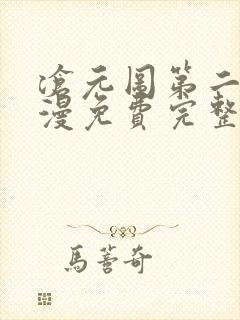 滄元圖第二
漫免費完整
馬薈奇